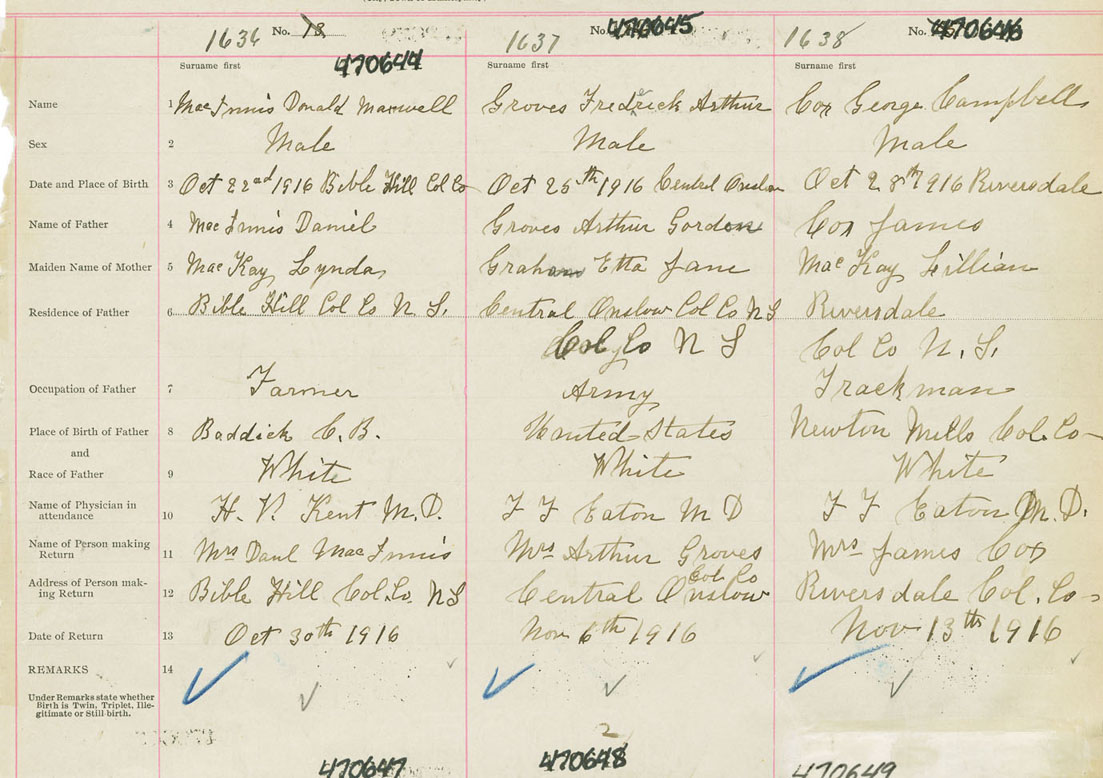 1636 No. 13 470644
1637 No. 470645
1638 No. 470646
Surname first Surname first Surname first
Name 1 MacInnis Donald Maxwell Groves Fredrick Arthur Cox George Campbell
Sex 2 Male Male Male
Date and Place of Birth 3 Oct 22nd 1916 Bible Hill Col Co Oct 25th 1916 Central Onslow Oct 28th 1916 Riversdale
Name of Father 4 MacInnis Daniel Groves Arthur Gorden Cox James
Maiden Name of Mother 5 MacKay Lynda Graham Etta Jane MacKay Lillian
Residence of Father 6 Bible Hill Col Co N S. Central Onslow Col Co N S Riversdale
Col Co N S Col Co N. S.
Occupation of Father 7 Farmer Army Trackman
Place of Birth of Father 8 Baddick C. B. United States Newton Mills Col. Co
and
Race of Father 9 White White White
Name of Physician in
attendance 10 H. V. Kent M. D. F F Eaton M D F F Eaton M. D.
Name of Person making
Return 11 Mrs Danl MacInnis Mrs Arthur Groves Mrs James Cox
Address of Person mak-
ing Return 12 Bible Hill Col. Co. N S Central Onslow Col. Co Riversdale Col. Co
Date of Return 13 Oct 30th 1916 Nov 6th 1916 Nov 13th 1916
REMARKS 14
Under Remarks state whether
Birth is Twin, Triplet, Ille-
gitimate or Still-birth.
2
470647 470648 470649